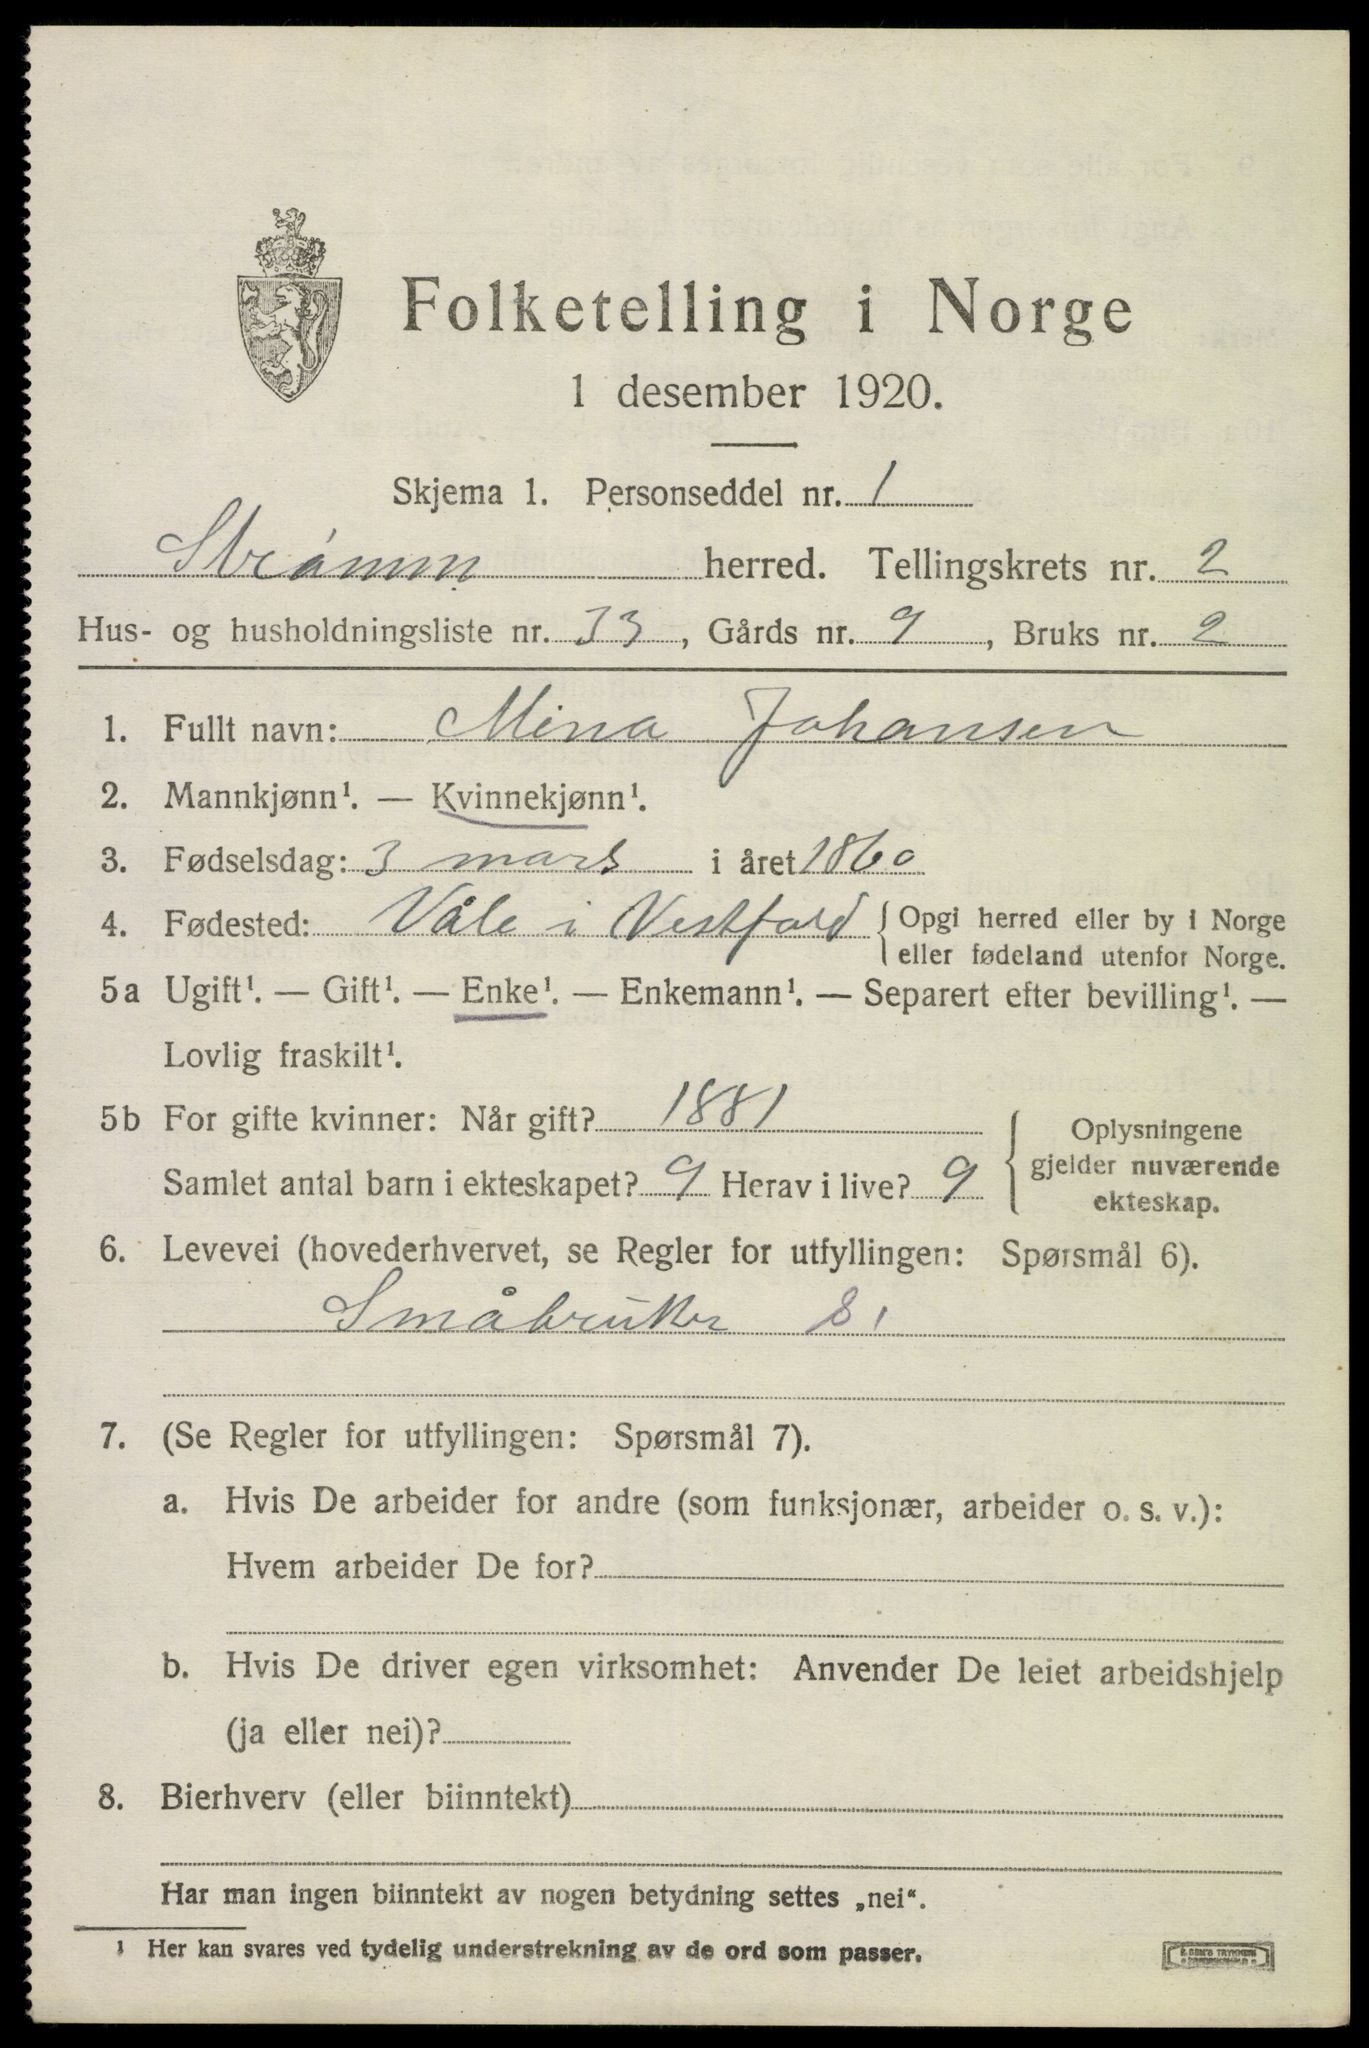 Folketelling i Norge
1 desember 1920.
Skjema 1. Personseddel nr. 1
Strömm herred. Tellingskrets nr. 2
Hus- og husholdningsliste nr. 33, Gårds nr. 9, Bruks nr. 2
1. Fullt navn: Mina Johansen
2. Mannkjønn¹. — Kvinnekjønn¹.
3. Fødselsdag: 3 mars i året 1860
4. Fødested: Våle i Vestfold { Opgi herred eller by i Norge
eller fødeland utenfor Norge.
5a Ugift¹. — Gift¹. — Enke¹. — Enkemann¹. — Separert efter bevilling¹. —
Lovlig fraskilt¹.
5b For gifte kvinner: Når gift? 1881
Samlet antal barn i ekteskapet? 9 Herav i live? 9
Oplysningene
gjelder nuværende
ekteskap.
6. Levevei (hovederhvervet, se Regler for utfyllingen: Spørsmål 6).
Småbruker S1
7. (Se Regler for utfyllingen: Spørsmål 7).
a. Hvis De arbeider for andre (som funksjonær, arbeider o. s. v.):
Hvem arbeider De for?
b. Hvis De driver egen virksomhet: Anvender De leiet arbeidshjelp
(ja eller nei)?
8. Bierhverv (eller biinntekt)
Har man ingen biinntekt av nogen betydning settes „nei“.
¹ Her kan svares ved tydelig understrekning av de ord som passer.